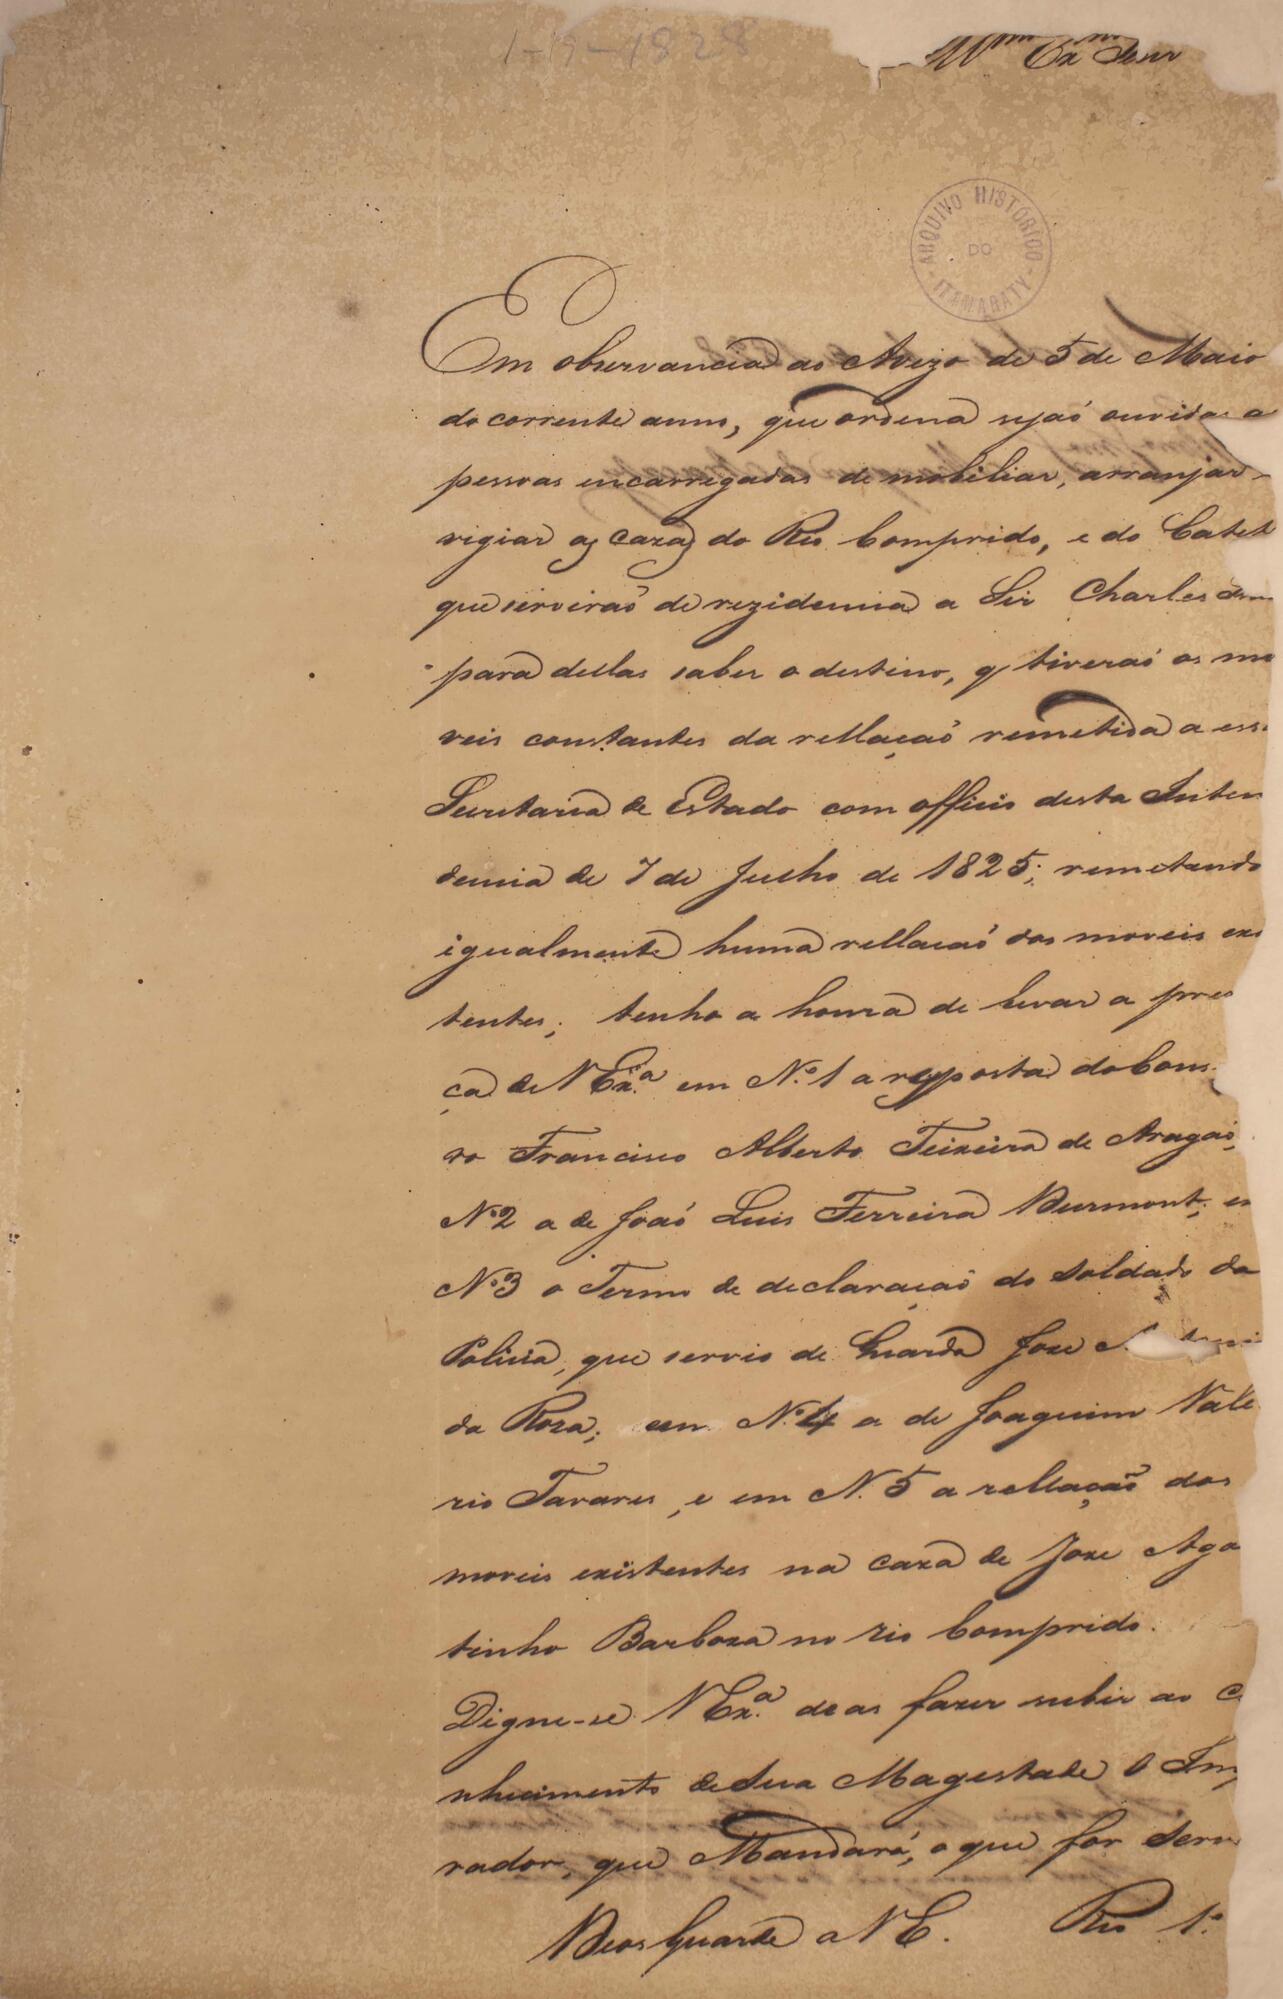 1-19-1828
Illmo Exmo Senr
ARQUIVO HISTÓRICO DO ITAMARATY
Em observancia ao Avizo de 5 de Maio
do corrente anno, que ordena sejaó ouvidas a
pessoas encarregadas de mobiliar, arranjar
vigiar as cazas do Rio Comprido, e do Catet
que serviraó de rezidencia a Sir Charles
para dellas saber o destino, q tiveraó os mo
veis constantes da rellaçaó remetida a ess
Secretaria de Estado com officio desta Inten
dencia de 7 de Julho de 1825; remetendo
igualmente huma rellacaó dos moveis exis
tentes; tenho a honra de levar a pres
ça de V Exª em N.º 1 a resposta do Cons
ro Francisco Alberto Teixeira de Aragaó,
Nº 2 a de Joaó Luis Ferreira Durmont; e
Nº 3 o Termo de declaraçaó do Soldado da
Policia, que servio de Guarda Joze
da Roza; em Nº 4 a de Joaquim Vale
rio Tavares, e em N. 5 a rellaçaõ dos
moveis existentes na caza de Joze Ago
tinho Barboza no rio Comprido.
Digne-se V Exª de as fazer subir ao C
nhecimento de Sua Magestade O Imp
rador, que Mandará, o que for Serv
Deos Guarde a V E. Rio 1º